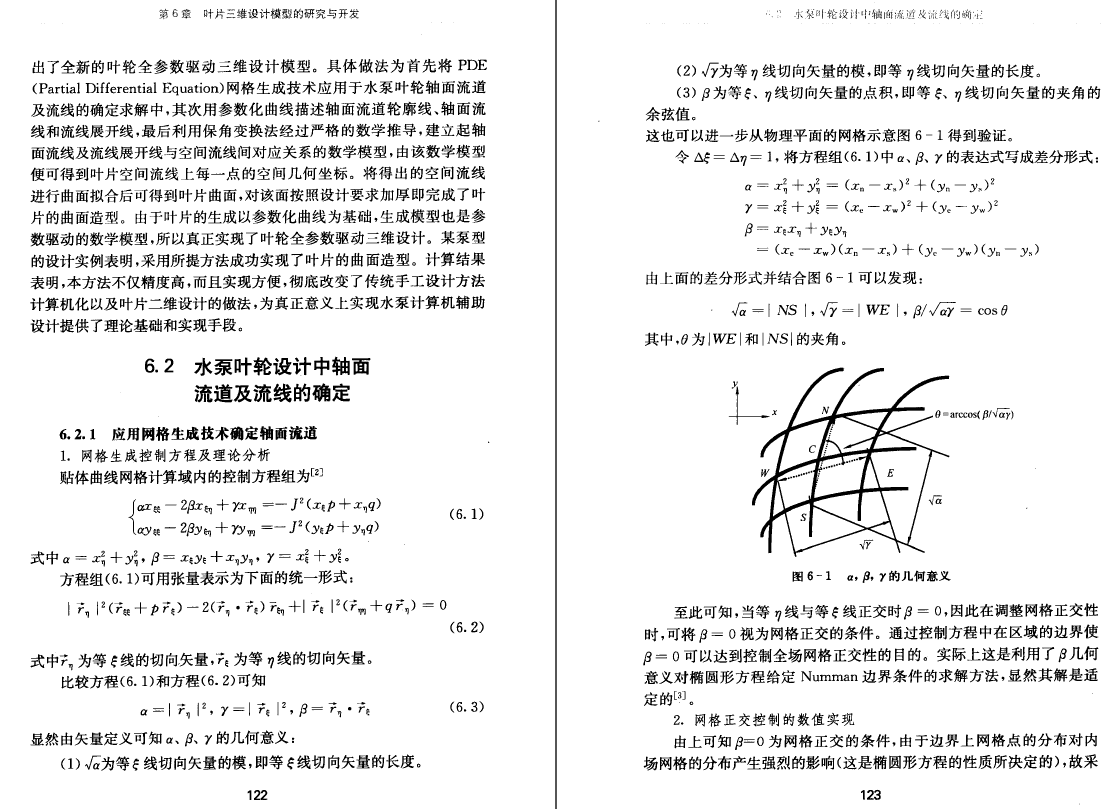 第6章 叶片三维设计模型的研究与开发
出了全新的叶轮全参数驱动三维设计模型。具体做法为首先将 PDE
(Partial Differential Equation)网格生成技术应用于水泵叶轮轴面流道
及流线的确定求解中,其次用参数化曲线描述轴面流道轮廓线、轴面流
线和流线展开线,最后利用保角变换法经过严格的数学推导,建立起轴
面流线及流线展开线与空间流线间对应关系的数学模型,由该数学模型
便可得到叶片空间流线上每一点的空间几何坐标。将得出的空间流线
进行曲面拟合后可得到叶片曲面,对该面按照设计要求加厚即完成了叶
片的曲面造型。由于叶片的生成以参数化曲线为基础,生成模型也是参
数驱动的数学模型,所以真正实现了叶轮全参数驱动三维设计。某泵型
的设计实例表明,采用所提方法成功实现了叶片的曲面造型。计算结果
表明,本方法不仅精度高,而且实现方便,彻底改变了传统手工设计方法
计算机化以及叶片二维设计的做法,为真正意义上实现水泵计算机辅助
设计提供了理论基础和实现手段。
6.2 水泵叶轮设计中轴面
流道及流线的确定
6.2.1 应用网格生成技术确定轴面流道
1. 网格生成控制方程及理论分析
贴体曲线网格计算域内的控制方程组为[2]
αx_ξξ − 2βx_ξη + γx_ηη = − J²(x_ξ p + x_η q)
αy_ξξ − 2βy_ξη + γy_ηη = − J²(y_ξ p + y_η q) (6.1)
式中 α = x²_η + y²_η, β = x_ξ y_ξ + x_η y_η, γ = x²_ξ + y²_ξ。
方程组(6.1)可用张量表示为下面的统一形式:
| r⃗_η |²(r⃗_ξξ + p r⃗_ξ) − 2(r⃗_η · r⃗_ξ) r⃗_ξη + | r⃗_ξ |²(r⃗_ηη + q r⃗_η) = 0
(6.2)
式中r⃗_η 为等 ξ 线的切向矢量,r⃗_ξ 为等 η 线的切向矢量。
比较方程(6.1)和方程(6.2)可知
α = | r⃗_η |², γ = | r⃗_ξ |², β = r⃗_η · r⃗_ξ (6.3)
显然由矢量定义可知 α、β、γ 的几何意义:
(1) √α为等 ξ 线切向矢量的模,即等 ξ 线切向矢量的长度。
122
6.2 水泵叶轮设计中轴面流道及流线的确定
(2) √γ为等 η 线切向矢量的模,即等 η 线切向矢量的长度。
(3) β 为等 ξ、η 线切向矢量的点积,即等 ξ、η 线切向矢量的夹角的
余弦值。
这也可以进一步从物理平面的网格示意图 6-1 得到验证。
令 Δξ = Δη = 1, 将方程组(6.1)中 α、β、γ 的表达式写成差分形式:
α = x²_η + y²_η = (x_n − x_s)² + (y_n − y_s)²
γ = x²_ξ + y²_ξ = (x_e − x_w)² + (y_e − y_w)²
β = x_ξ x_η + y_ξ y_η
= (x_e − x_w)(x_n − x_s) + (y_e − y_w)(y_n − y_s)
由上面的差分形式并结合图 6-1 可以发现:
√α = | NS |, √γ = | WE |, β/√αγ = cos θ
其中,θ 为|WE|和|NS|的夹角。
y
x
N
θ=arccos(β/√αγ)
C
W
E
√α
S
√γ
图 6-1 α, β, γ 的几何意义
至此可知,当等 η 线与等 ξ 线正交时 β = 0,因此在调整网格正交性
时,可将 β = 0 视为网格正交的条件。通过控制方程中在区域的边界使
β = 0 可以达到控制全场网格正交性的目的。实际上这是利用了 β 几何
意义对椭圆形方程给定 Numman 边界条件的求解方法,显然其解是适
定的[3]。
2. 网格正交控制的数值实现
由上可知 β=0 为网格正交的条件,由于边界上网格点的分布对内
场网格的分布产生强烈的影响(这是椭圆形方程的性质所决定的),故采
123